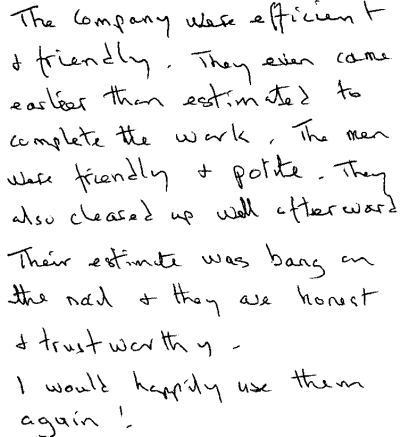 The company were efficient
& friendly. They even came
earlier than estimated to
complete the work. The men
were friendly & polite. They
also cleared up well afterward
Their estimate was bang on
the nail & they are honest
& trustworthy -
I would happily use them
again!